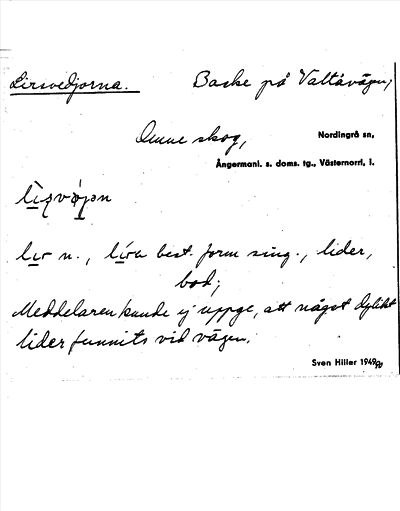 Lirsvedjorna. Backe på Valtåvägen;
Denne skog, Nordingrå sn,
Ångermanl. s. doms. tg., Västernorrl, l.
lir n., best. form sing., lider,
bod;
Meddelaren kunde ej uppge, att något dylikt
lider funnits vid vägen.
Sven Hiller 1949